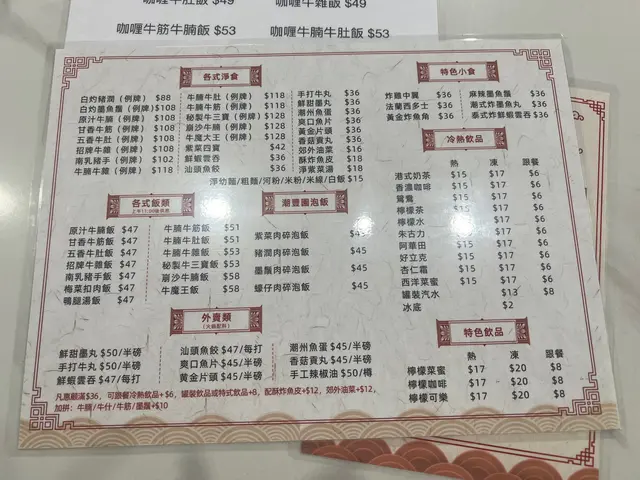 咖喱牛肚飯 $49 咖喱牛雜飯 $49
咖喱牛筋牛腩飯 $53 咖喱牛腩牛肚飯 $53
各式淨食
白灼豬潤（例牌） $88
白灼墨魚鬚（例牌）$108
原汁牛腩（例牌） $108
甘香牛筋（例牌） $108
五香牛肚（例牌） $108
招牌牛雜（例牌） $108
南乳豬手（例牌） $102
牛腩牛雜（例牌） $118
牛腩牛肚（例牌） $118
牛腩牛筋（例牌） $118
秘製牛三寶（例牌）$128
崩沙牛腩（例牌） $128
牛魔大王（例牌） $128
紫菜四寶 $42
鮮蝦雲吞 $36
汕頭魚餃 $36
手打牛丸 $36
鮮甜墨丸 $36
潮州魚蛋 $36
爽口魚片 $36
黃金片頭 $36
香菇貢丸 $36
郊外油菜 $16
酥炸魚皮 $18
淨紫菜湯 $18
淨幼麵/粗麵/河粉/米粉/米線/白飯 $15
特色小食
炸雞中翼 $36
法蘭西多士 $36
黃金炸魚角 $36
麻辣墨魚鬚 $36
潮式炸墨魚丸 $36
泰式炸鮮蝦雲吞 $36
冷熱飲品
熱 凍 跟餐
港式奶茶 $15 $17 $6
香濃咖啡 $15 $17 $6
鴛鴦 $15 $17 $6
檸檬茶 $15 $17 $6
檸檬水 $15 $17 $6
朱古力 $15 $17 $6
阿華田 $15 $17 $6
好立克 $15 $17 $6
杏仁霜 $15 $17 $6
西洋菜蜜 $15 $17 $6
罐裝汽水 $13 $8
冰底 $2
各式飯類
原汁牛腩飯 $47
甘香牛筋飯 $47
五香牛肚飯 $47
招牌牛雜飯 $47
南乳豬手飯 $47
梅菜扣肉飯 $47
鴨腿湯飯 $47
牛腩牛筋飯 $51
牛腩牛肚飯 $51
牛腩牛雜飯 $51
秘製牛三寶飯 $53
崩沙牛腩飯 $58
牛魔王飯 $58
潮豐團泡飯
紫菜肉碎泡飯 $45
豬潤肉碎泡飯 $45
墨鬚肉碎泡飯 $45
蠔仔肉碎泡飯 $45
外賣類
（火鍋配料）
鮮甜墨丸 $50/半磅
手打牛丸 $50/半磅
鮮蝦雲吞 $47/每打
汕頭魚餃 $47/每打
爽口魚片 $45/半磅
黃金片頭 $45/半磅
潮州魚蛋 $45/半磅
香菇貢丸 $45/半磅
手工辣椒油 $50/樽
特色飲品
熱 凍 跟餐
檸檬菜蜜 $17 $20 $8
檸檬咖啡 $17 $20 $8
檸檬可樂 $17 $20 $8
凡惠顧滿$36，可跟餐冷熱飲品+$6，罐裝飲品或特式飲品+8，配酥炸魚皮+$12，郊外油菜+$12，
加拼：牛腩/牛什/牛筋/墨鬚+$10